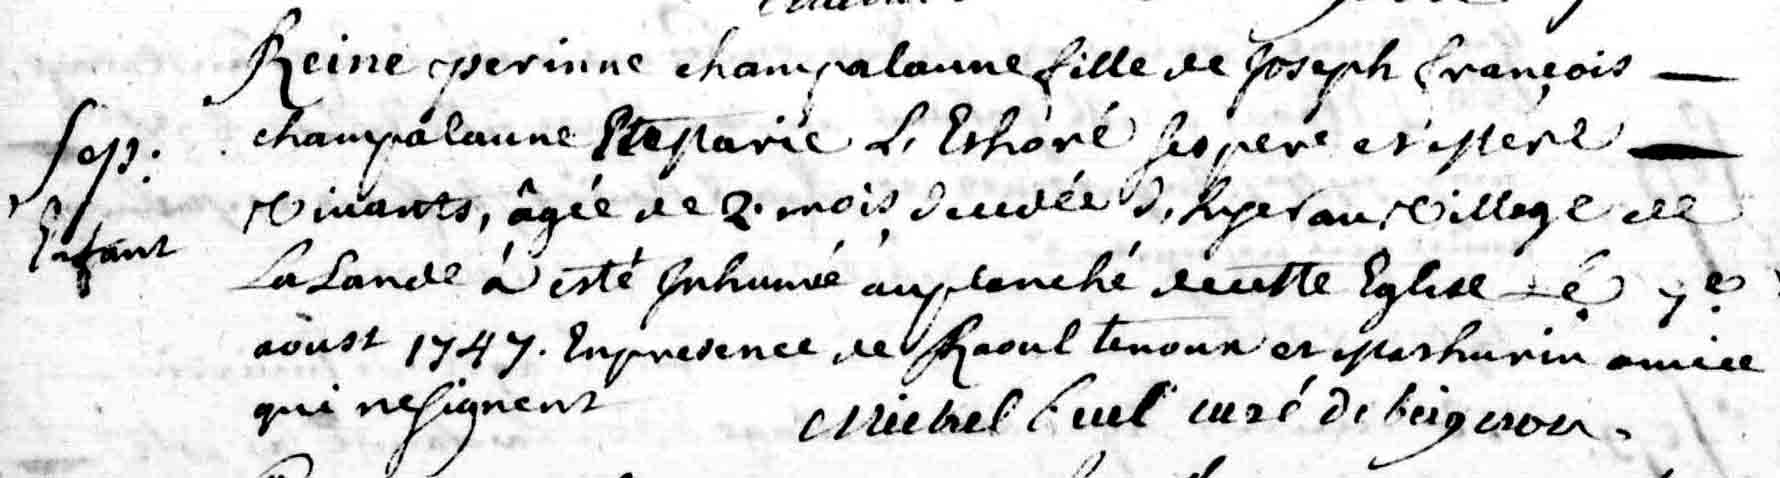 Reine perinne champalaune fille de Joseph françois
Sep.
champalaune Et Marie L'Eshoré ses pere et Mere
Enfant
Vivants, âgée de 2. mois decedée d'hyer au Village de
La Lande à esté Inhumé au planché de cette Eglise Le 7e
aoust 1747. En presence de Raoul tenoux et Mathurin amice
qui ne signent
Michel curé de